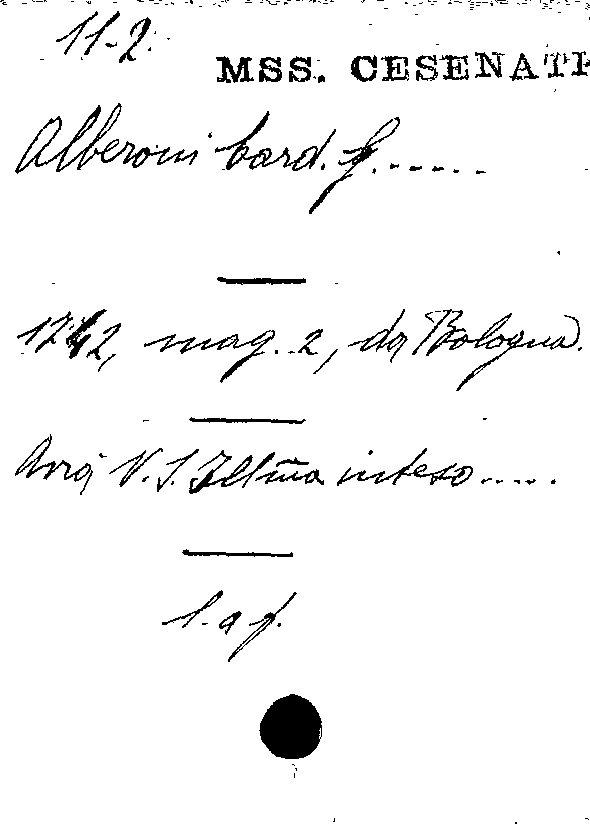 11-2.
MSS. CESENATI
Alberoni Card. G.......
1742, mag. 2, da Bologna.
Avrà V. S. Illm̃a inteso.....
l. a f.